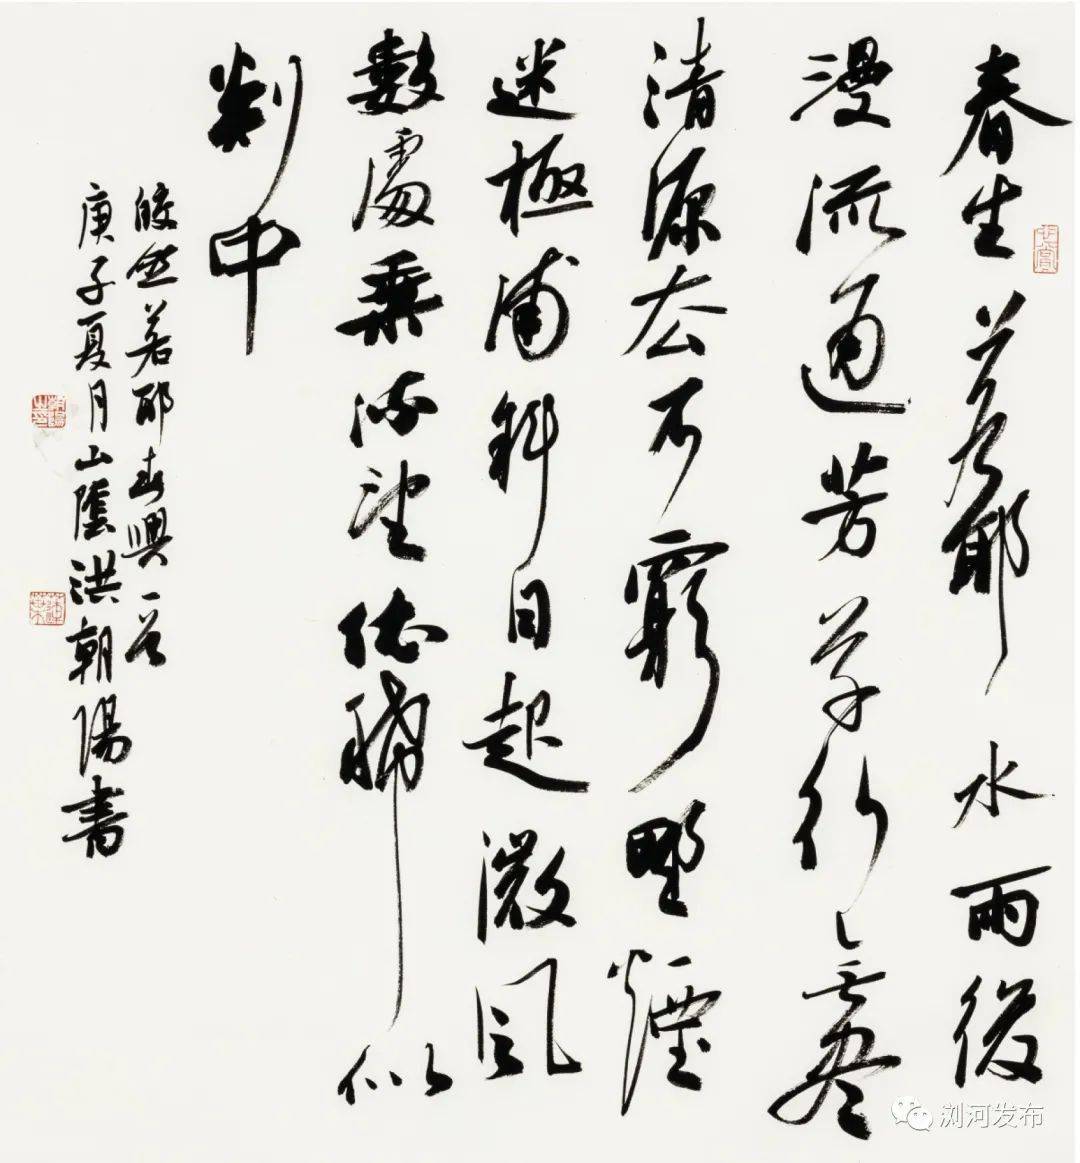 春生若耶水雨後
漫流通芳草行無盡
清源去不窮野煙
迷極浦斜日起微風
數處乘流望依稀似
剡中
皎然若耶春興一首
庚子夏月山陰洪朝陽書
浏河发布